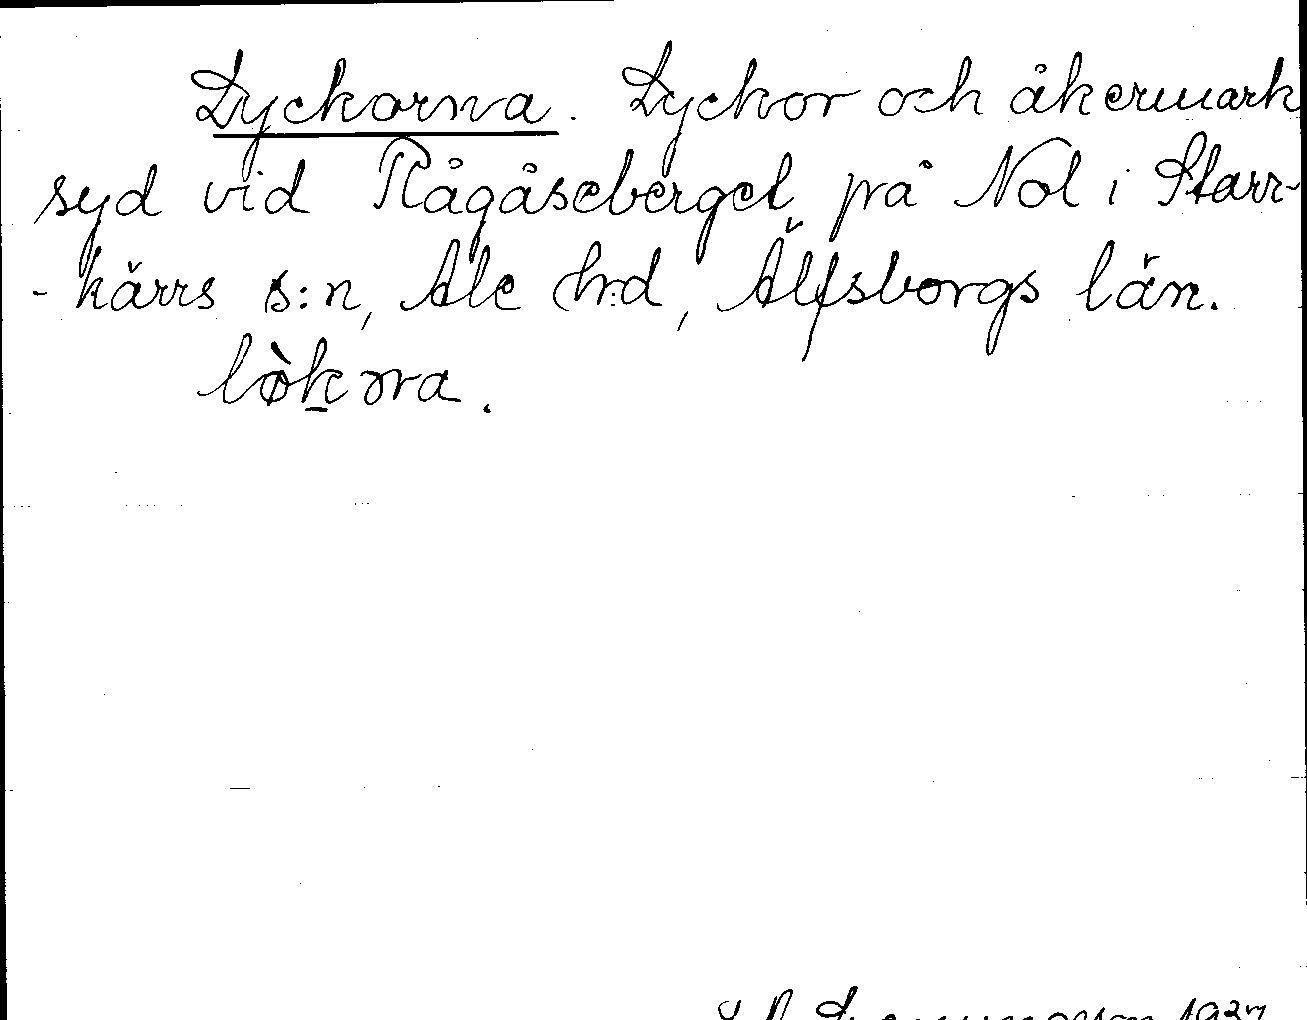 Lyckorna. Lyckor och åkermark
syd vid Rågåseberget på Nol i Starr-
-kärrs s:n, Ale h:d, Älfsborgs län.
1937